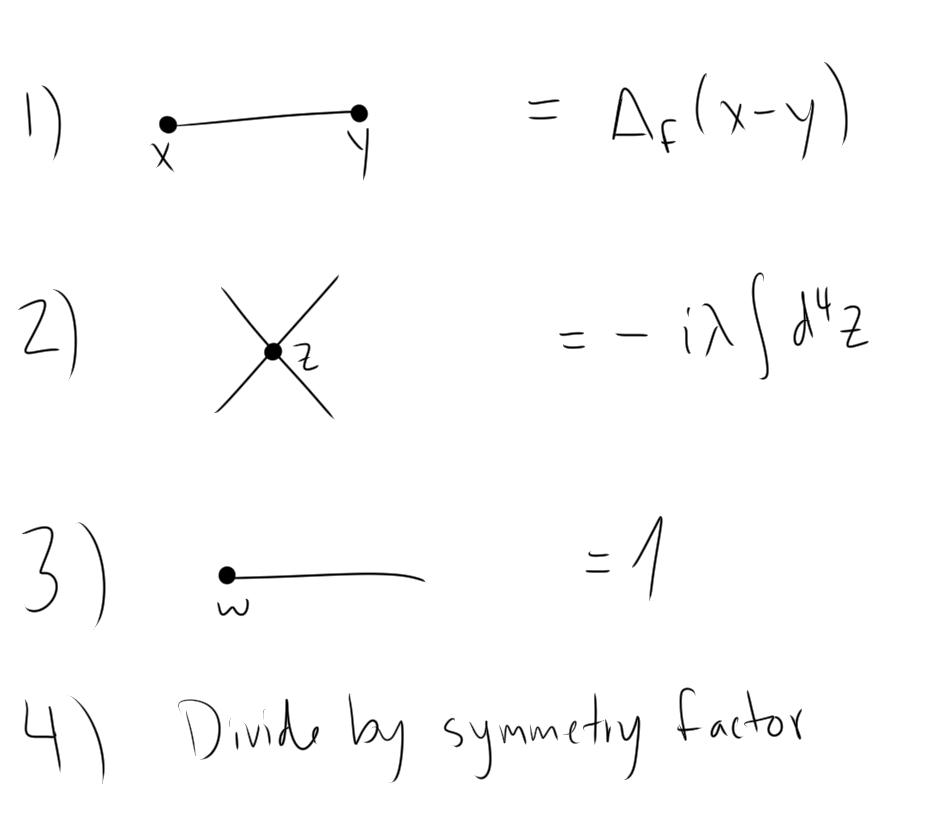 1) x y = Δ_F(x-y)
2) z = - iλ∫d⁴z
3) w = 1
4) Divide by symmetry factor